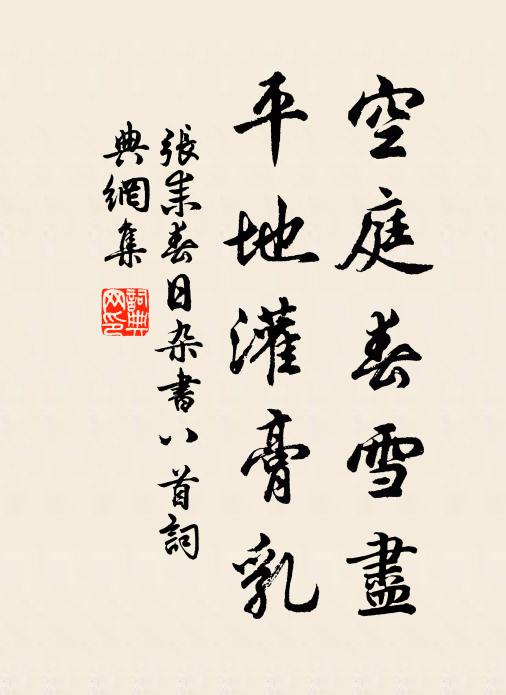 空庭春雪盡
平地灌膏乳
張耒春日杂書八首詞
典網集
詞典
网印